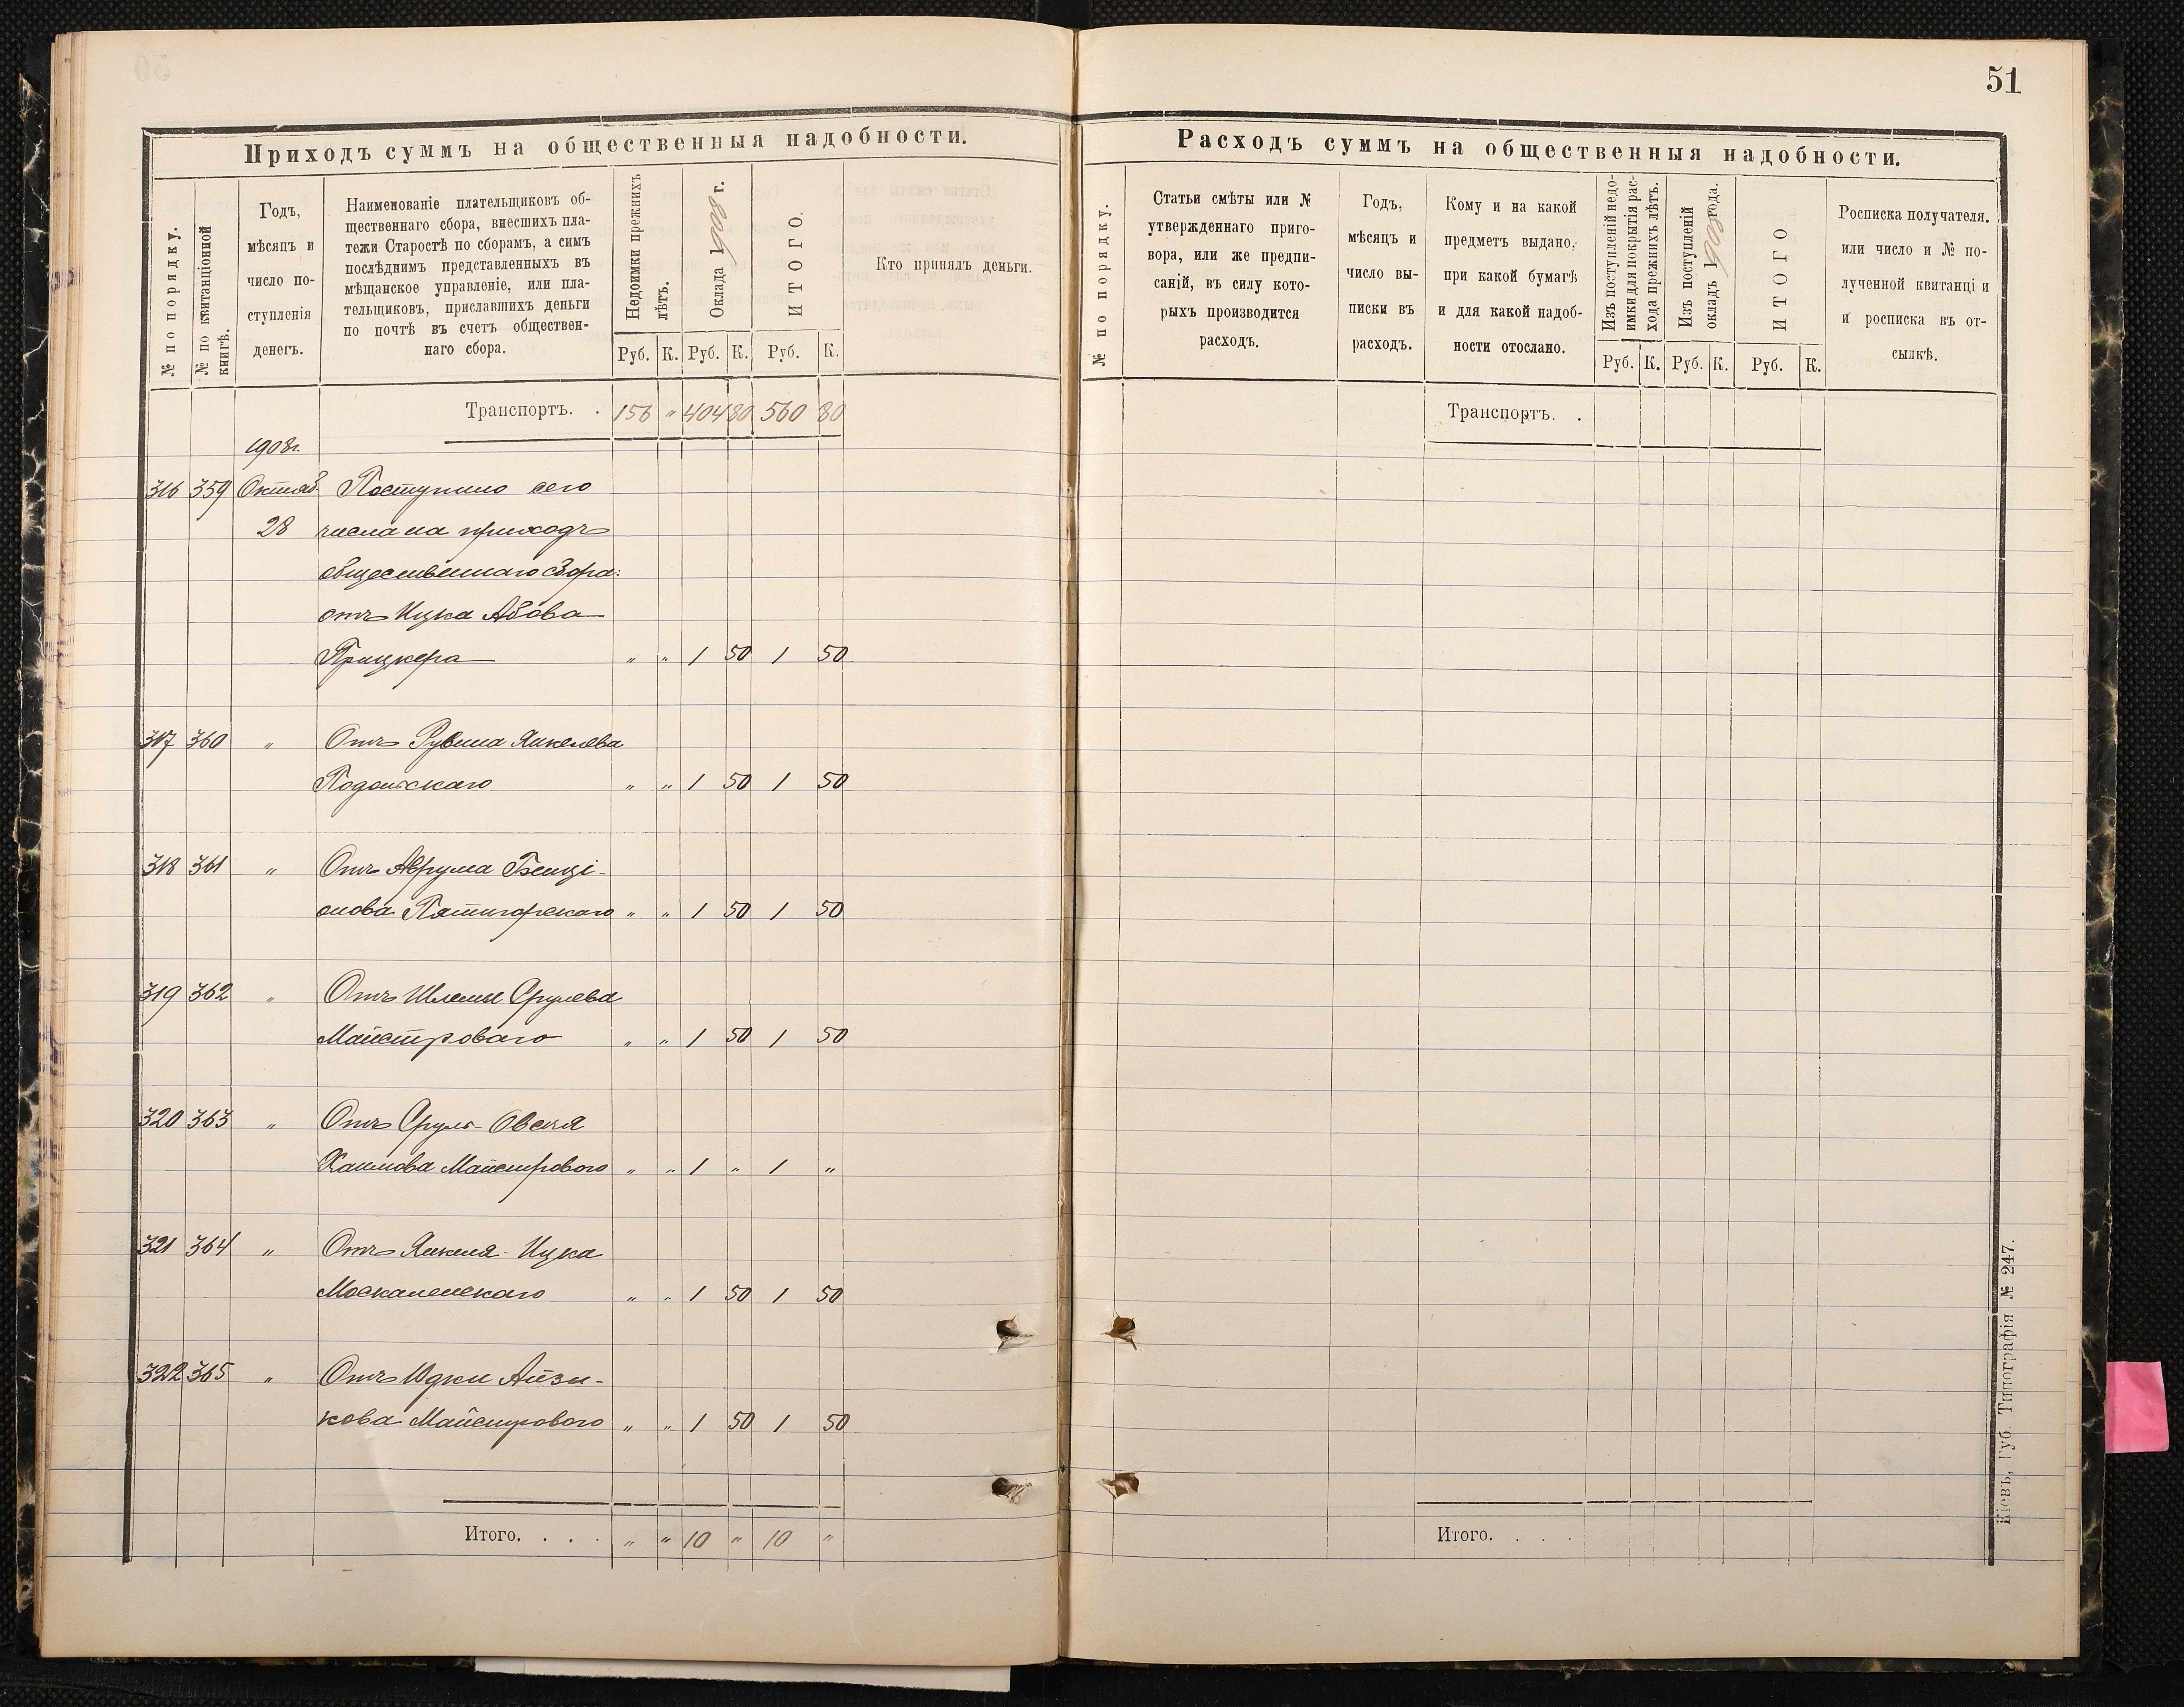 51
Приходъ суммъ на общественныя надобности.
№ по порядку.
№ по квитанціонной книгѣ.
Годъ,
мѣсяцъ и
число по-
ступленія
денегъ.
Наименованіе плательщиковъ об-
щественнаго сбора, внесшихъ пла-
тежи Старостѣ по сборамъ, а симъ
послѣднимъ представленныхъ въ
мѣщанское управленіе, или пла-
тельщиковъ, приславшихъ деньги
по почтѣ въ счетъ обществен-
наго сбора.
Недоимки прежнихъ
лѣтъ.
Оклада 1908 г.
ИТОГО.
Кто принялъ деньги.
Руб. К. Руб. К. Руб. К.
Транспортъ. . 156 " 404 80 560 80
1908г.
316 359 Октяб. Поступило сего
28 числа на приходъ
общественнаго сбора:
отъ Ицка Абова
Прицкера " " 1 50 1 50
317 360 " Отъ Рувина Янкелева
Подольскаго " " 1 50 1 50
318 361 " Отъ Аврума Бенці-
онова Пятигорскаго " " 1 50 1 50
319 362 " Отъ Шлемы Срулева
Майстроваго " " 1 50 1 50
320 363 " Отъ Сруль-Овсея
Хаимова Майстрового " " 1 " 1 "
321 364 " Отъ Янкеля-Ицка
Москаленскаго " " 1 50 1 50
322 365 " Отъ Юдки Айзи-
кова Майстрового " " 1 50 1 50
Итого. . . . " " 10 " 10 "
Расходъ суммъ на общественныя надобности.
№ по порядку.
Статьи смѣты или №
утвержденнаго приго-
вора, или же предпи-
саній, въ силу кото-
рыхъ производится
расходъ.
Годъ,
мѣсяцъ и
число вы-
писки въ
расходъ.
Кому и на какой
предметъ выдано,
при какой бумагѣ
и для какой надоб-
ности отослано.
Изъ поступленій недо-
имки для покрытія рас-
хода прежнихъ лѣтъ.
Изъ поступленій
окладъ 1908 года.
ИТОГО
Росписка получателя.
или число и № по-
лученной квитанці и
и росписка въ от-
сылкѣ.
Руб. К. Руб. К. Руб. К.
Транспортъ. .
Итого. . . .
Кіевъ, Губ. Типографія № 247.